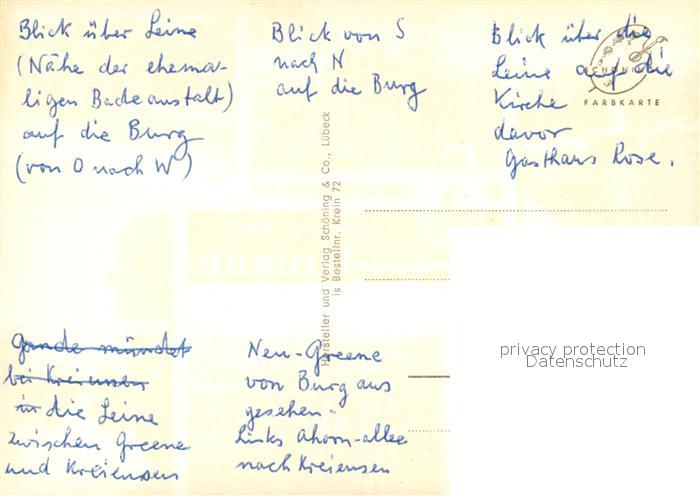 Blick über Leine
(Nähe der ehema-
ligen Badeanstalt)
auf die Burg
(von O nach W)
Blick von S
nach N
auf die Burg
Blick über die
Leine auf die
Kirche
davor
Gasthaus Rose.
SCHÖNING
FARBKARTE
Hersteller und Verlag Schöning & Co., Lübeck
is Bestellnr. Krein 72
Gande mündet
bei Kreiensen
in die Leine
zwischen Greene
und Kreiensen
Neu-Greene
von Burg aus
gesehen -
Links Ahorn-allee
nach Kreiensen
privacy protection
Datenschutz